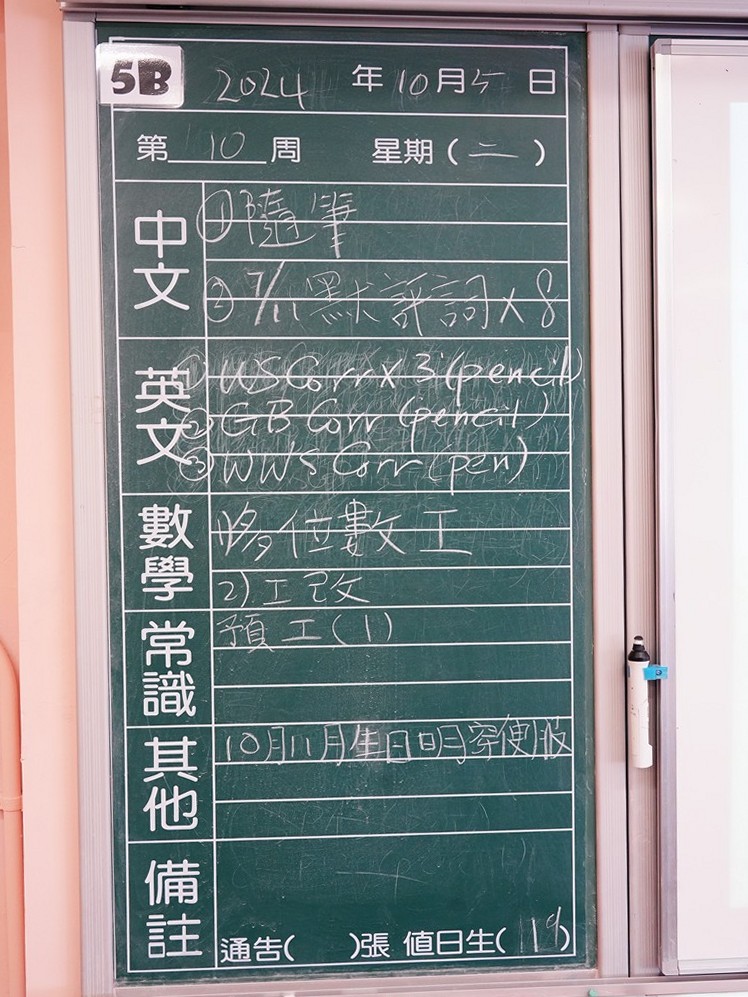 5B 2024 年 10 月 5 日
第 10 周 星期 ( 二 )
中文
① 隨筆
② 7/11 默評詞 x 8
英文
① WS Corr x 3 (pencil)
② GB Corr (pencil)
③ WWS Corr (pen)
數學
1) 多位數工
2) 工改
常識
預工(1)
其他
10月11月生日明穿便服
備註
通告( )張 值日生( 19 )